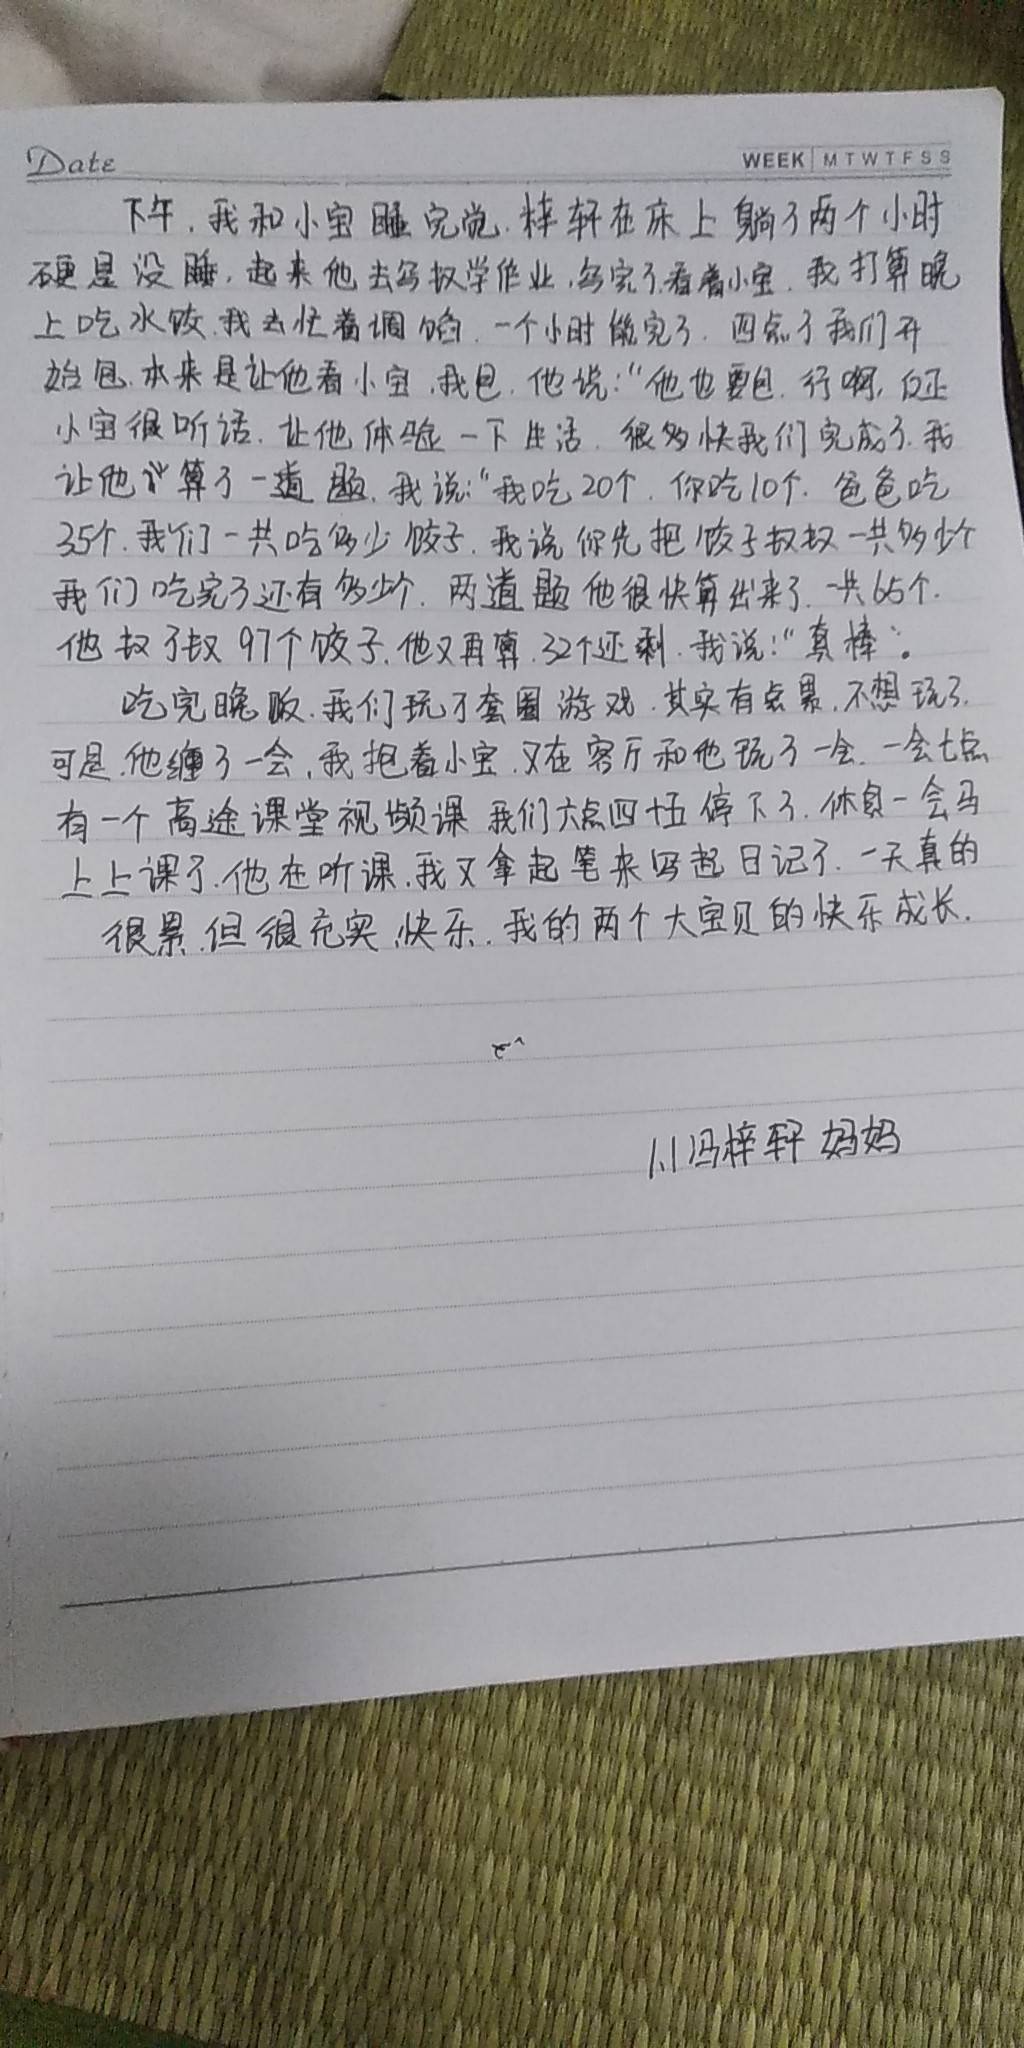 Date
WEEK M T W T F S S
下午,我和小宝睡完觉.梓轩在床上躺了两个小时
硬是没睡.起来他去写数学作业,写完了看着小宝.我打算晚
上吃水饺.我去忙着调馅.一个小时做完了.四点了我们开
始包.本来是让他看小宝,我包.他说:“他也要包.行啊,反正
小宝很听话.让他体验一下生活.很多快我们完成了.我
让他算了一道题.我说:“我吃20个.你吃10个.爸爸吃
35个.我们一共吃多少饺子.我说你先把饺子数数一共多少个
我们吃完了还有多少个.两道题他很快算出来了.一共65个.
他数了数97个饺子.他又再算.32个还剩.我说:“真棒”。
吃完晚饭.我们玩了套圈游戏.其实有点累.不想玩了.
可是.他缠了一会,我抱着小宝.又在客厅和他玩了一会.一会七点
有一个高途课堂视频课 我们六点四十五停下了.休息一会马
上上课了.他在听课.我又拿起笔来写起日记了.一天真的
很累.但很充实,快乐.我的两个大宝贝的快乐成长.
1.1冯梓轩妈妈